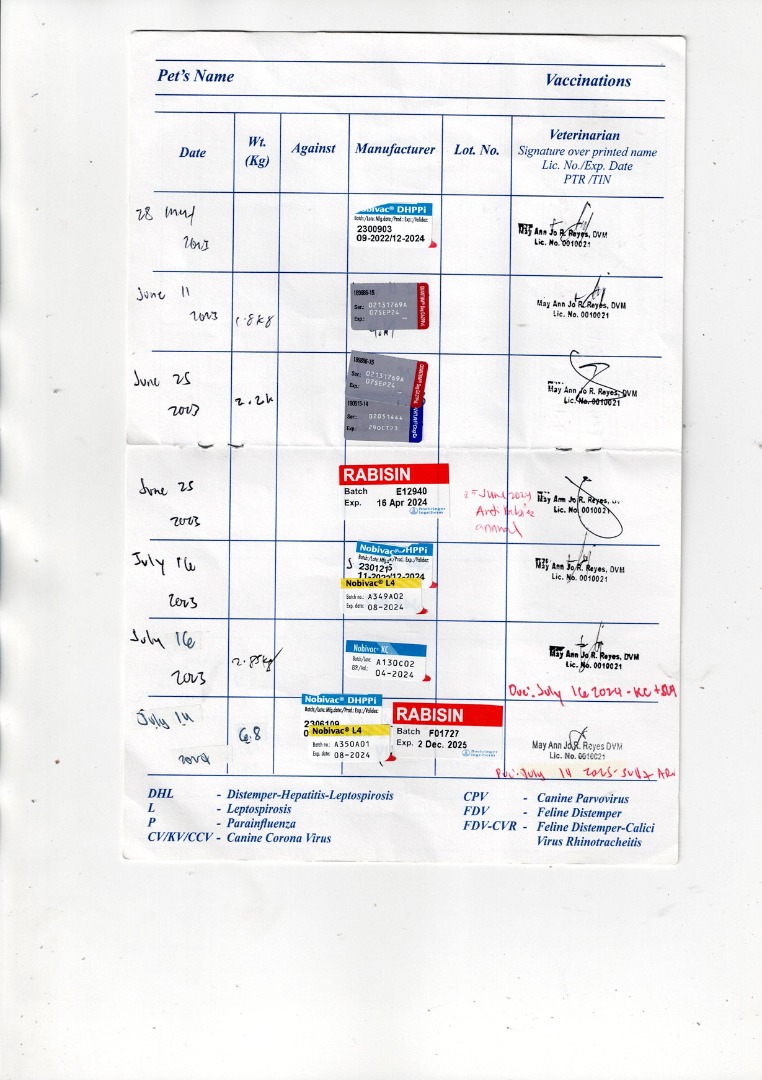 Pet's Name
Vaccinations
Date
Wt.
(Kg)
Against
Manufacturer
Lot. No.
Veterinarian
Signature over printed name
Lic. No./Exp. Date
PTR /TIN
28
2023
Nobivac® DHPPi
2300903
09-2022/12-2024
May Ann Jo R. Reyes, DVM
Lic. No. 0010021
June 11
2023
1.8kg
Ser: 02131769A
Exp: 07SEP24
May Ann Jo R. Reyes, DVM
Lic. No. 0010021
June 25
2023
2.2k
Ser: 02131769A
Exp: 07SEP24
Ser: 02051444
Exp: 29OCT23
May Ann Jo R. Reyes, DVM
Lic. No. 0010021
June 25
2023
RABISIN
Batch E12940
Exp. 16 Apr 2024
Boehringer
Ingelheim
25 June 2024
Anti Rabies
annual
May Ann Jo R. Reyes,
Lic. No. 0010021
July 16
2023
Nobivac® DHPPi
Nobivac® L4
Batch no.: A349A02
Exp. date: 08-2024
May Ann Jo R. Reyes, DVM
Lic. No. 0010021
July 16
2023
2.85kg
Nobivac® KC
A130C02
04-2024
May Ann Jo R. Reyes, DVM
Lic. No. 0010021
Due: July 16 2024 - KC +
July 14
2024
6.8
Nobivac® DHPPi
2306109
Nobivac® L4
Batch no.: A350A01
Exp. date: 08-2024
RABISIN
Batch F01727
Exp. 2 Dec. 2025
Boehringer
Ingelheim
May Ann Jo R. Reyes DVM
Lic. No. 0010021
Due: July 14 2025
DHL - Distemper-Hepatitis-Leptospirosis
L - Leptospirosis
P - Parainfluenza
CV/KV/CCV - Canine Corona Virus
CPV - Canine Parvovirus
FDV - Feline Distemper
FDV-CVR - Feline Distemper-Calici
Virus Rhinotracheitis